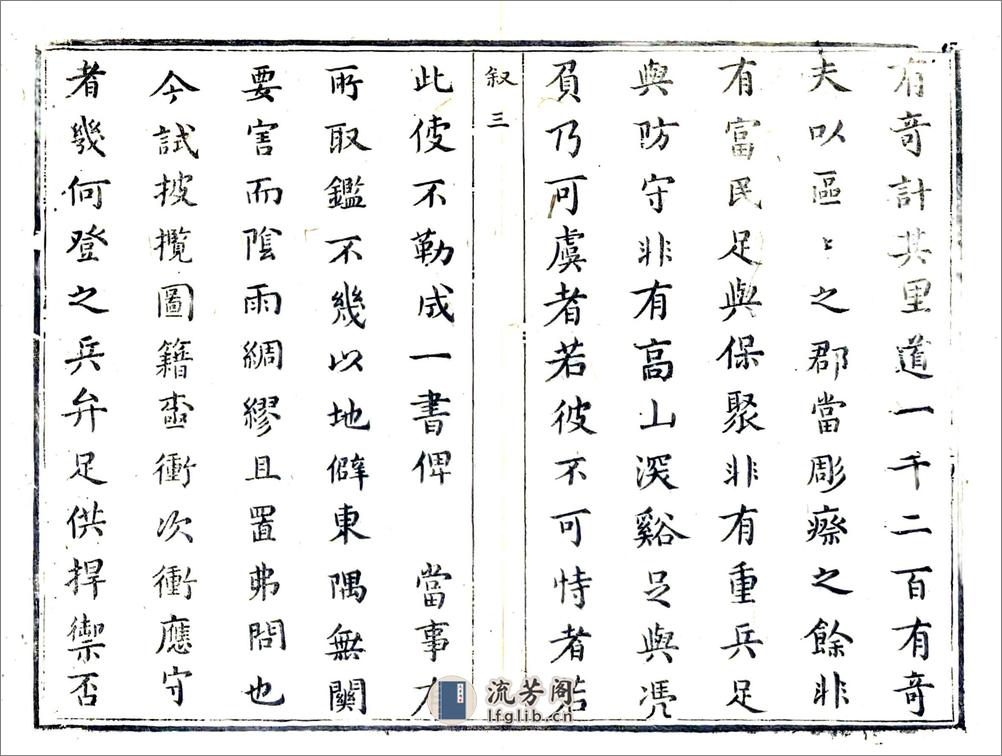 有奇計其里道一千二百有奇
夫以區〻之郡當彫瘵之餘非
有富民足與保聚非有重兵足
與防守非有高山深谿足與憑
負乃可虞者若彼不可恃者若
叙三
此使不勒成一書俾 當事
所取鑑不幾以地僻東隅無關
要害而陰雨綢繆且置弗問也
今試披攬圖籍衝次衝應守
者幾何登之兵弁足供捍禦否
流芳阁
lfglib.cn